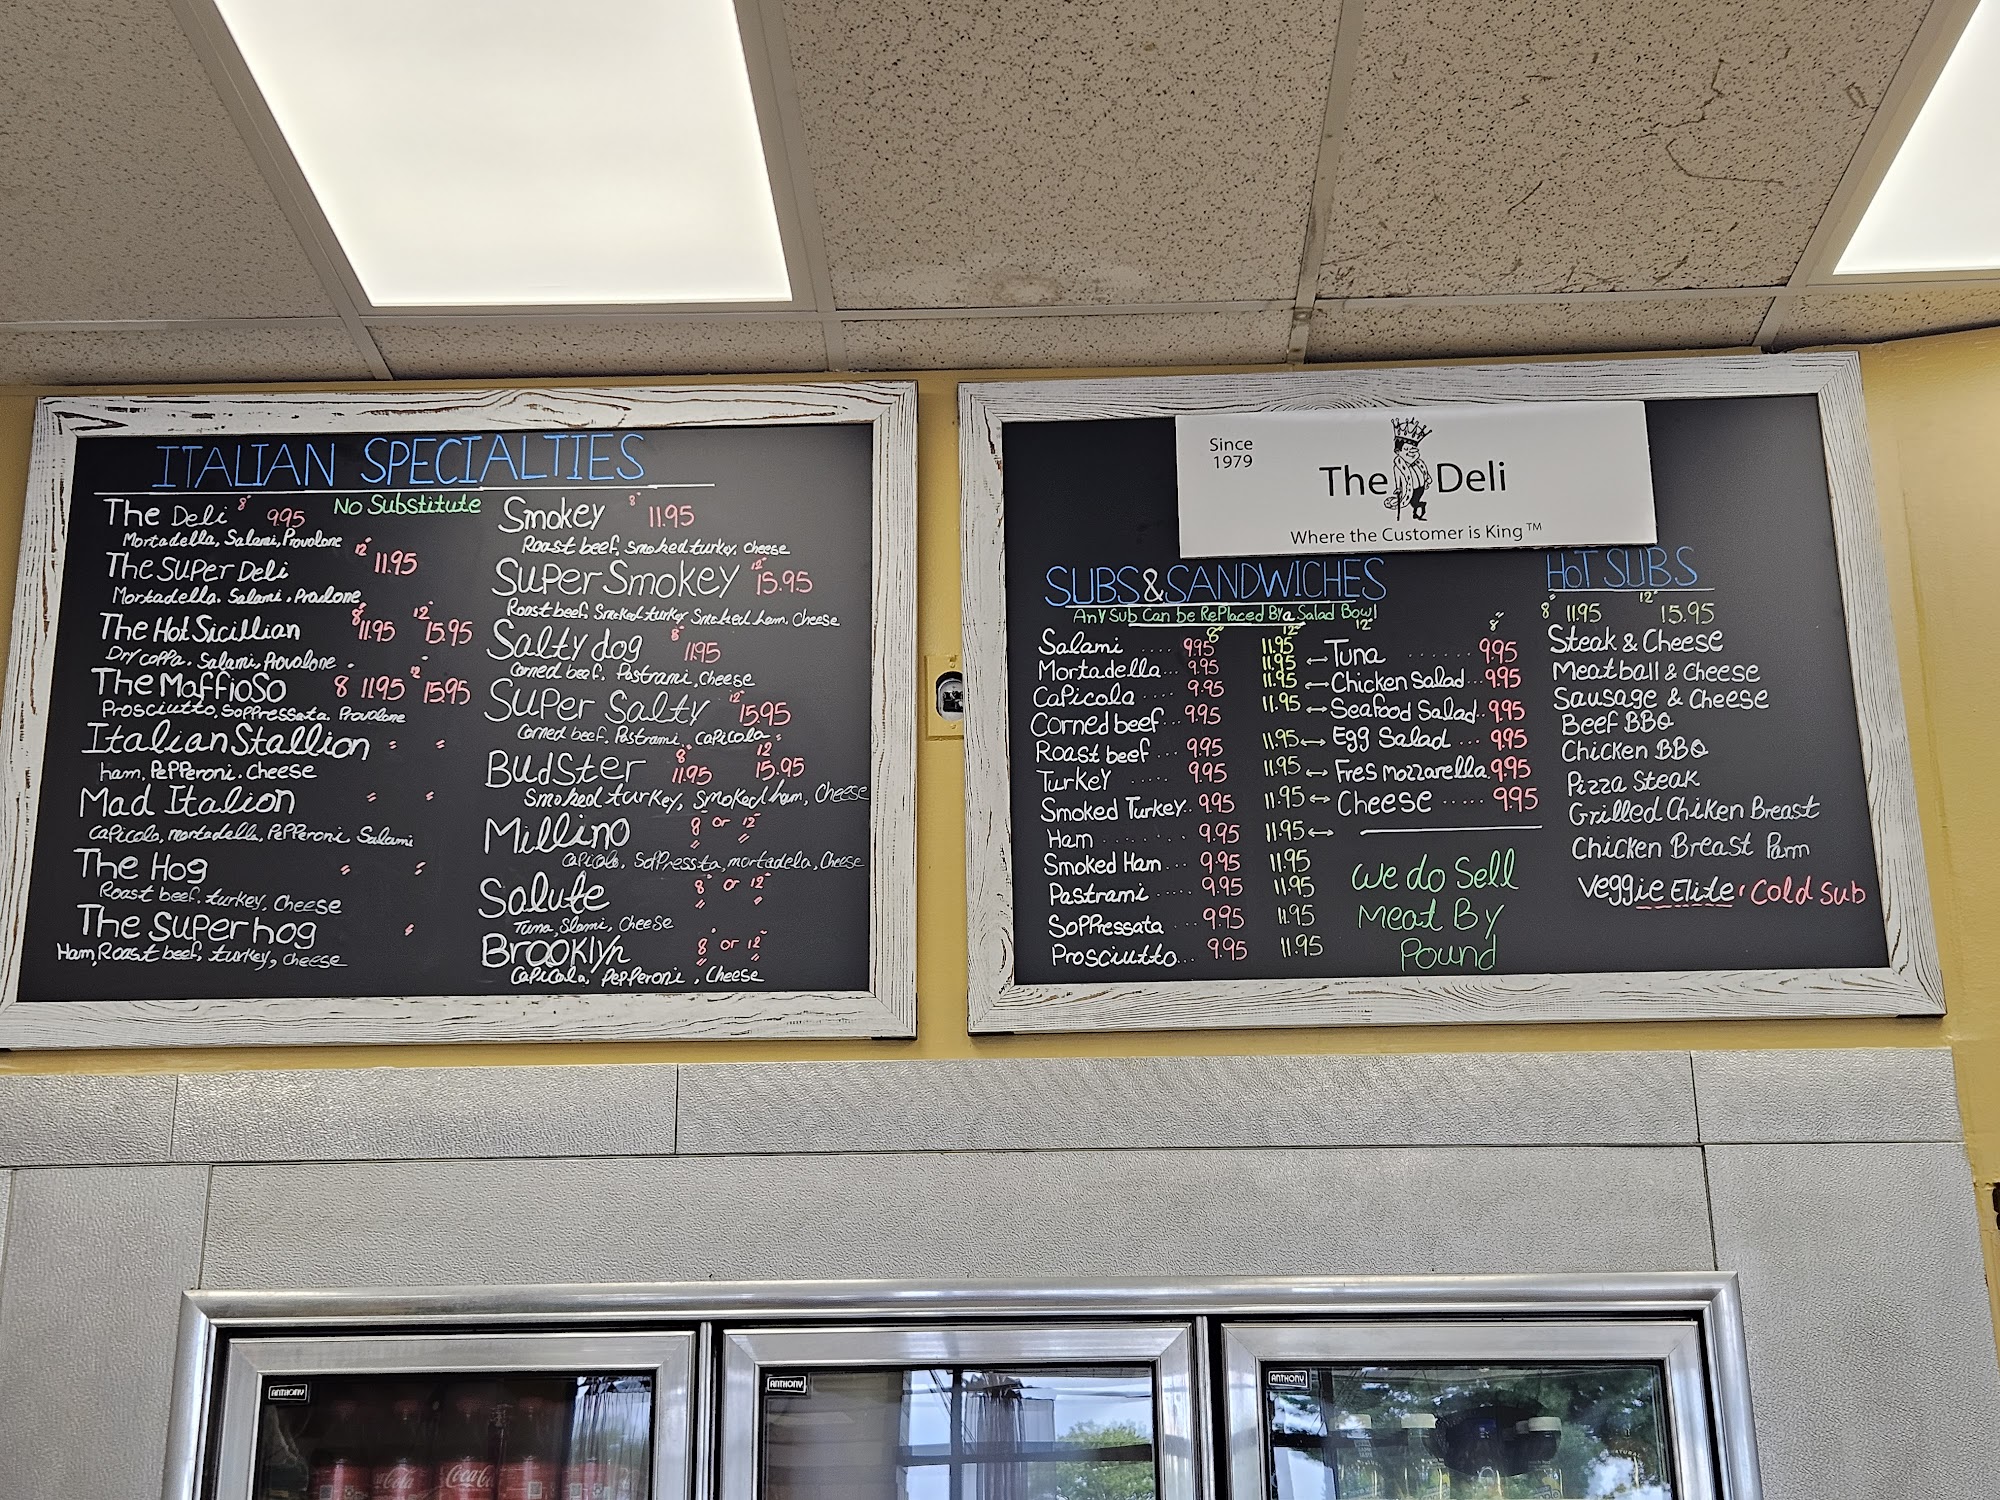 ITALIAN SPECIALTIES
The Deli 8" 9.95 No Substitute
Mortadella, Salami, Provolone
The Super Deli 12" 11.95
Mortadella. Salami. Provlone
The Hot Sicillian 8" 11.95 12" 15.95
Dry coppa. Salami, Provolone.
The Maffioso 8 11.95 12" 15.95
Prosciutto, Soppressata. Provolone
Italian Stallion " "
ham, Pepperoni. Cheese
Mad Italion " "
Capicola, mortadella, Pepperoni, Salami
The Hog " "
Roast beef. turkey, Cheese
The Super hog "
Ham, Roast beef, turkey, cheese
Smokey 8" 11.95
Roast beef. Smoked turkey, Cheese
Super Smokey 12" 15.95
Roast beef. Smoked turkey Smoked ham, Cheese
Salty dog 8" 11.95
Corned beef. Pastrami, Cheese
Super Salty 12" 15.95
Corned beef. Pastrami, Capicola
Budster 8" 11.95 12" 15.95
Smoked turkey, Smoked ham, Cheese
Millino 8" or 12"
" "
Capicola, Soppressta, mortadela, Cheese
Salute 8" or 12"
" "
Tuna, Slami, Cheese
Brooklyn 8" or 12"
" "
Capicola, Pepperoni, Cheese
Since
1979
The Deli
Where the Customer is King™
SUBS & SANDWICHES
Any Sub Can be Replaced By a Salad Bowl
8" 12"
Salami .... 9.95 11.95
Mortadella... 9.95 11.95
Capicola .... 9.95 11.95
Corned beef... 9.95 11.95
Roast beef ... 9.95 11.95
Turkey ..... 9.95 11.95
Smoked Turkey.. 9.95 11.95
Ham ....... 9.95 11.95
Smoked Ham... 9.95 11.95
Pastrami .... 9.95 11.95
Soppressata 9.95 11.95
Prosciutto... 9.95 11.95
12" 8"
←Tuna ....... 9.95
←Chicken Salad... 9.95
←Seafood Salad.. 9.95
↔Egg Salad ... 9.95
↔Fres mozzarella. 9.95
↔Cheese ..... 9.95
We do Sell
Meat By
Pound
HOT SUBS
8" 11.95 12" 15.95
Steak & Cheese
Meatball & Cheese
Sausage & Cheese
Beef BBQ
Chicken BBQ
Pizza Steak
Grilled Chiken Breast
Chicken Breast Parm
Veggie Elite, Cold Sub
ANTHONY
ANTHONY
ANTHONY
Coca-Cola